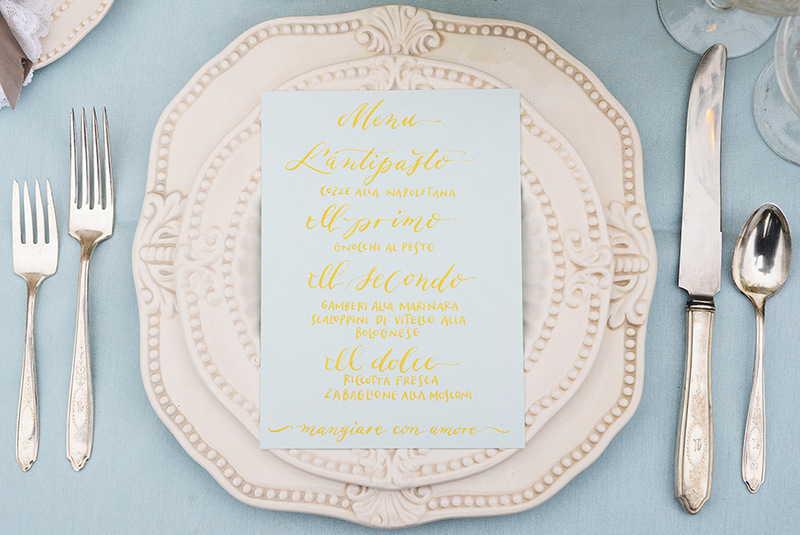 Menu
L'antipasto
COZZE ALLA NAPOLETANA
Il primo
GNOCCHI AL PESTO
Il secondo
GAMBERI ALLA MARINARA
SCALOPPINI DI VITELLO ALLA
BOLOGNESE
Il dolce
RICCOTTA FRESCA
ZABAGLIONE ALLA MOSCONI
mangiare con amore